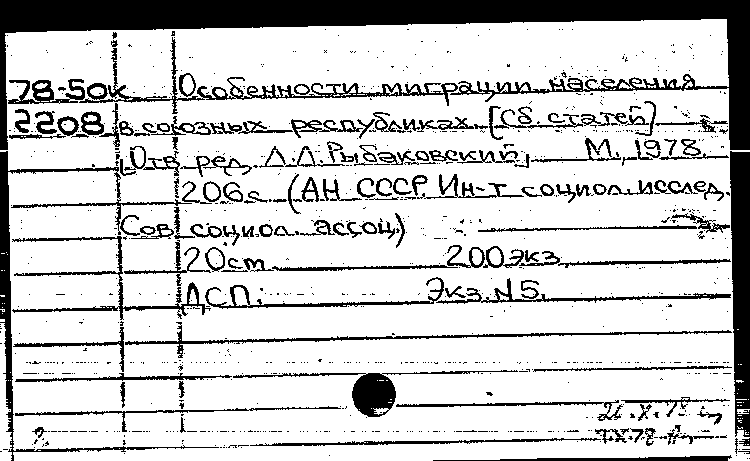 78-50к Особенности миграции населения
2208 в союзных республиках. [Сб. статей]
Отв. ред. Л.Л. Рыбаковский, М., 1978.
206с. (АН СССР. Ин-т социол. исслед.
Сов. социол. ассоц.)
20ст. 200экз.
ДСП. Экз. N5.
X.78